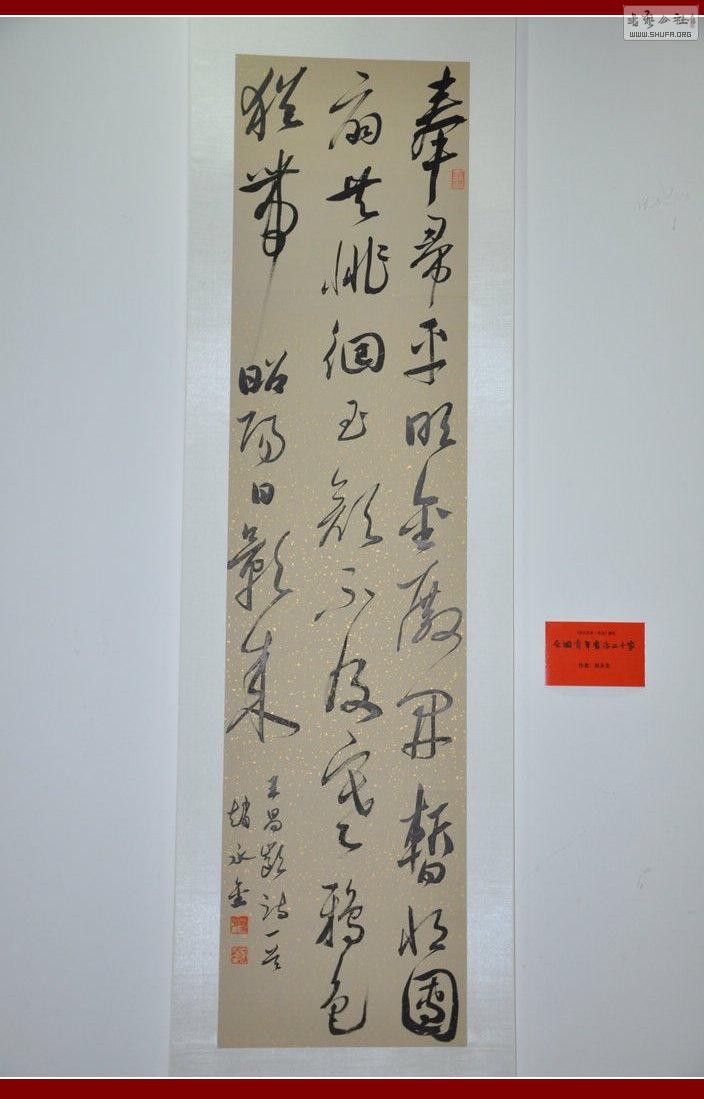 奉帚平明金殿開暫將團
扇共徘徊玉顏不及寒鴉色
猶帶昭陽日影來
王昌齡詩一首
趙永金
全國青年書法二十家
作者：赵永金
書藝公社
WWW.SHUFA.ORG